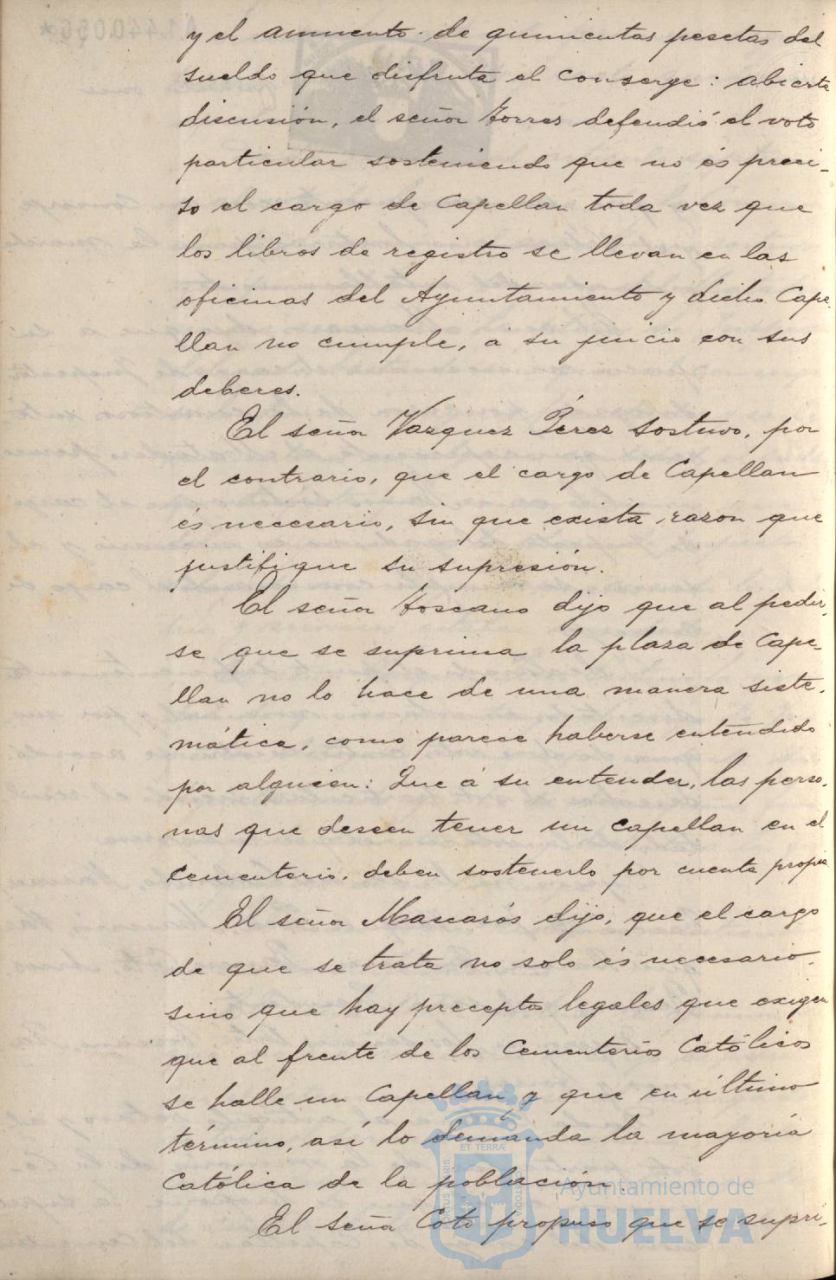 y el aumento de quinientas pesetas del
sueldo que disfruta el Conserge: abierta
discusión, el señor Torres defendió el voto
particular sosteniendo que no és preci-
so el cargo de Capellan toda vez que
los libros de registro se llevan en las
oficinas del Ayuntamiento y dicho Cape-
llan no cumple, á su juicio con sus
deberes.
El señor Vazquez Pérez sostuvo, por
el contrario, que el cargo de Capellan
és necesario, sin que exista razon que
justifique su supresión.
El señor Toscano dijo que al pedir-
se que se suprima la plaza de Cape-
llan no lo hace de una manera siste-
mática, como parece haberse entendido
por alguien: Que á su entender, las perso-
nas que deseen tener un capellan en el
Cementerio, deben sostenerlo por cuenta propia
El señor Mascarós dijo, que el cargo
de que se trata no solo és necesario,
sino que hay preceptos legales que exigen
que al frente de los Cementerios Católicos
se halle un Capellan, y que en último
término, así lo demanda la mayoría
Católica de la población.
El señor Coto propuso que se supri-
Ayuntamiento de
HUELVA